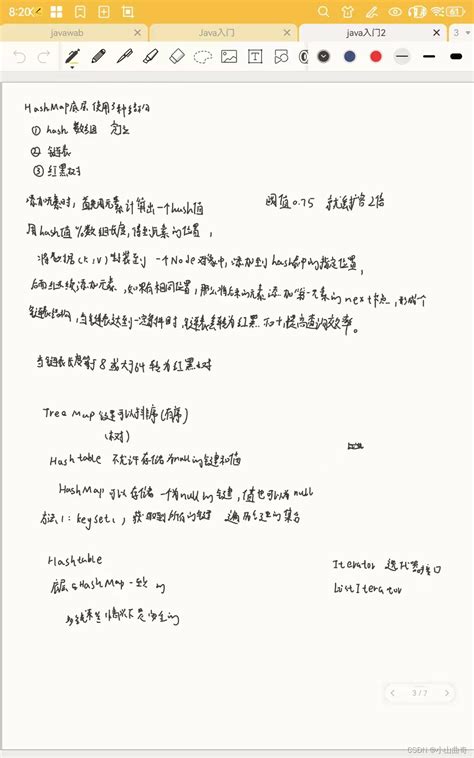 8:20
61
javawab
Java入门
java入门2
3
HashMap底层使用3种结构
① hash 数组 定位
② 链表
③ 红黑树
添加元素时，首先用元素计算出一个hash值
阈值0.75 就会扩容2倍
用hash值%数组长度，得到元素的位置，
将数据(k,v)封装到一个Node对象中，添加到hash表中的指定位置，
后面继续添加元素，如果有相同位置，那么将后来的元素添加到前一元素的next节点，形成个
链表结构，当链表达到一定条件时，链表会转为红黑 提高查询效率。
当链表长度等于8 或大于64 转为红黑树
TreeMap 键是可以排序(有序)
(树)
Hashtable 不允许存储为null的键和值
HashMap可以存储一个为null的键，值也可以为null
方法1：keyset()，获取到所有的键 遍历键的集合
Hashtable
Iterator 迭代器接口
底层与HashMap一致的
ListIterator
多线程情况下是安全的
3 / 7
CSDN @小山曲哥